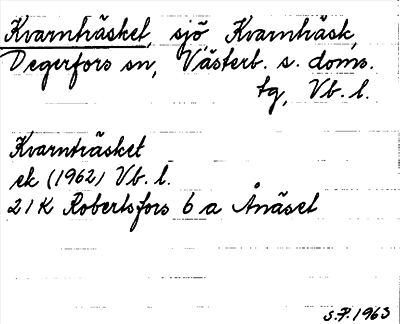 Kvarnträsket, sjö Kvarnträsk,
Degerfors sn, Västerb. s. doms.
tg, Vb. l.
Kvarnträsket
ek (1962) Vb. l.
21K Robertsfors 6 a Ånäset
S.P. 1963